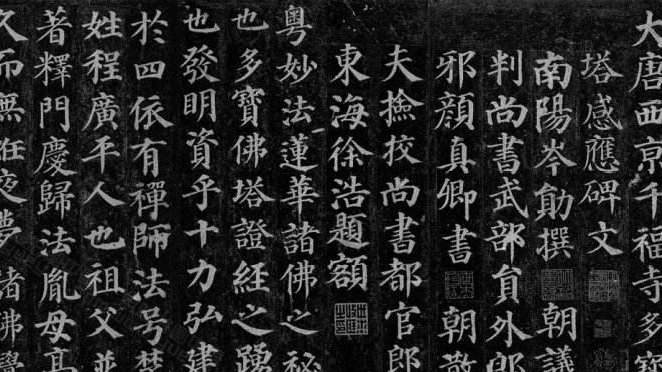 大唐西京千福寺多寶
塔感應碑文
南陽岑勛撰　朝議
判尚書武部員外郎
邪顏真卿書　朝散
夫撿挍尚書都官郎
東海徐浩題額
粵妙法蓮華諸佛之秘
也多寶佛塔證經之踴
也發明資乎十力弘建
於四依有禪師法号楚
姓程廣平人也祖父並
著釋門慶歸法胤母高
久而無妊夜夢諸佛覺